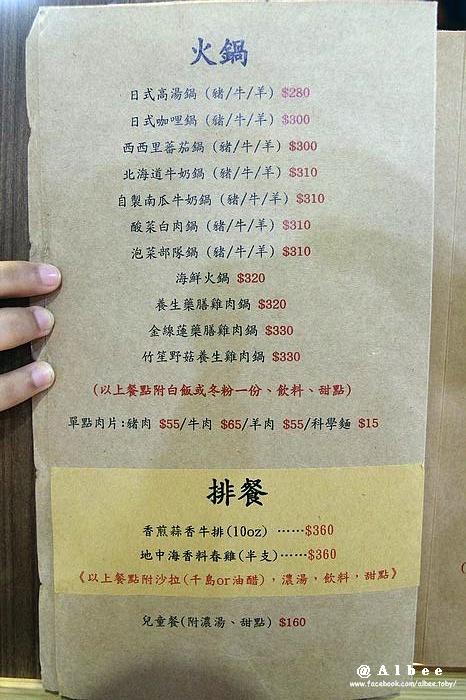 火鍋
日式高湯鍋(豬/牛/羊) $280
日式咖哩鍋(豬/牛/羊) $300
西西里蕃茄鍋(豬/牛/羊) $300
北海道牛奶鍋(豬/牛/羊) $310
自製南瓜牛奶鍋(豬/牛/羊) $310
酸菜白肉鍋(豬/牛/羊) $310
泡菜部隊鍋(豬/牛/羊) $310
海鮮火鍋 $320
養生藥膳雞肉鍋 $320
金線蓮藥膳雞肉鍋 $330
竹笙野菇養生雞肉鍋 $330
(以上餐點附白飯或冬粉一份、飲料、甜點)
單點肉片:豬肉 $55/牛肉 $65/羊肉 $55/科學麵 $15
排餐
香煎蒜香牛排(10oz) ……$360
地中海香料春雞(半支)……$360
《以上餐點附沙拉(千島or油醋),濃湯,飲料,甜點》
兒童餐(附濃湯、甜點) $160
@Albee
www.facebook.com/albee.toby/